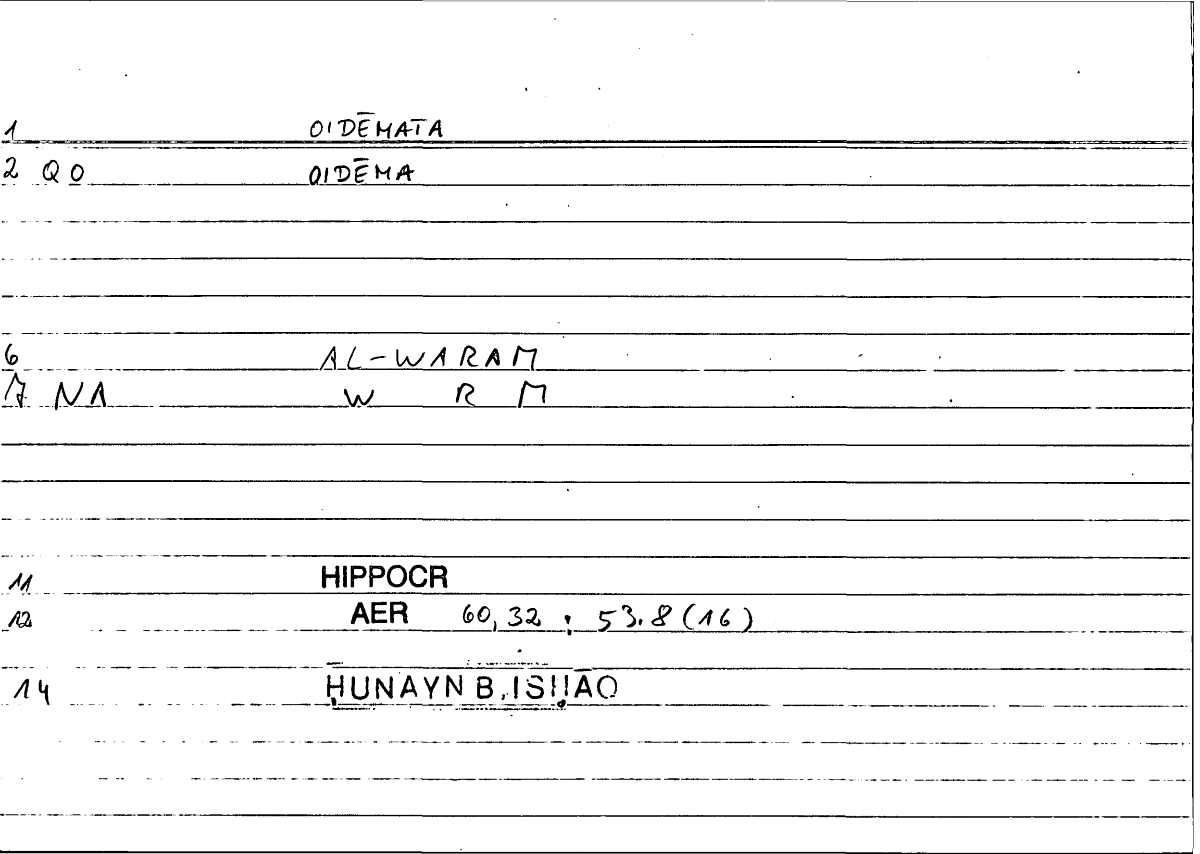 1 OIDĒMATA
2 QO OIDĒMA
6 AL-WARAM
7 NA W R M
11 HIPPOCR
12 AER 60,32 ; 53.8(16)
14 ḤUNAYN B. ISḤĀQ